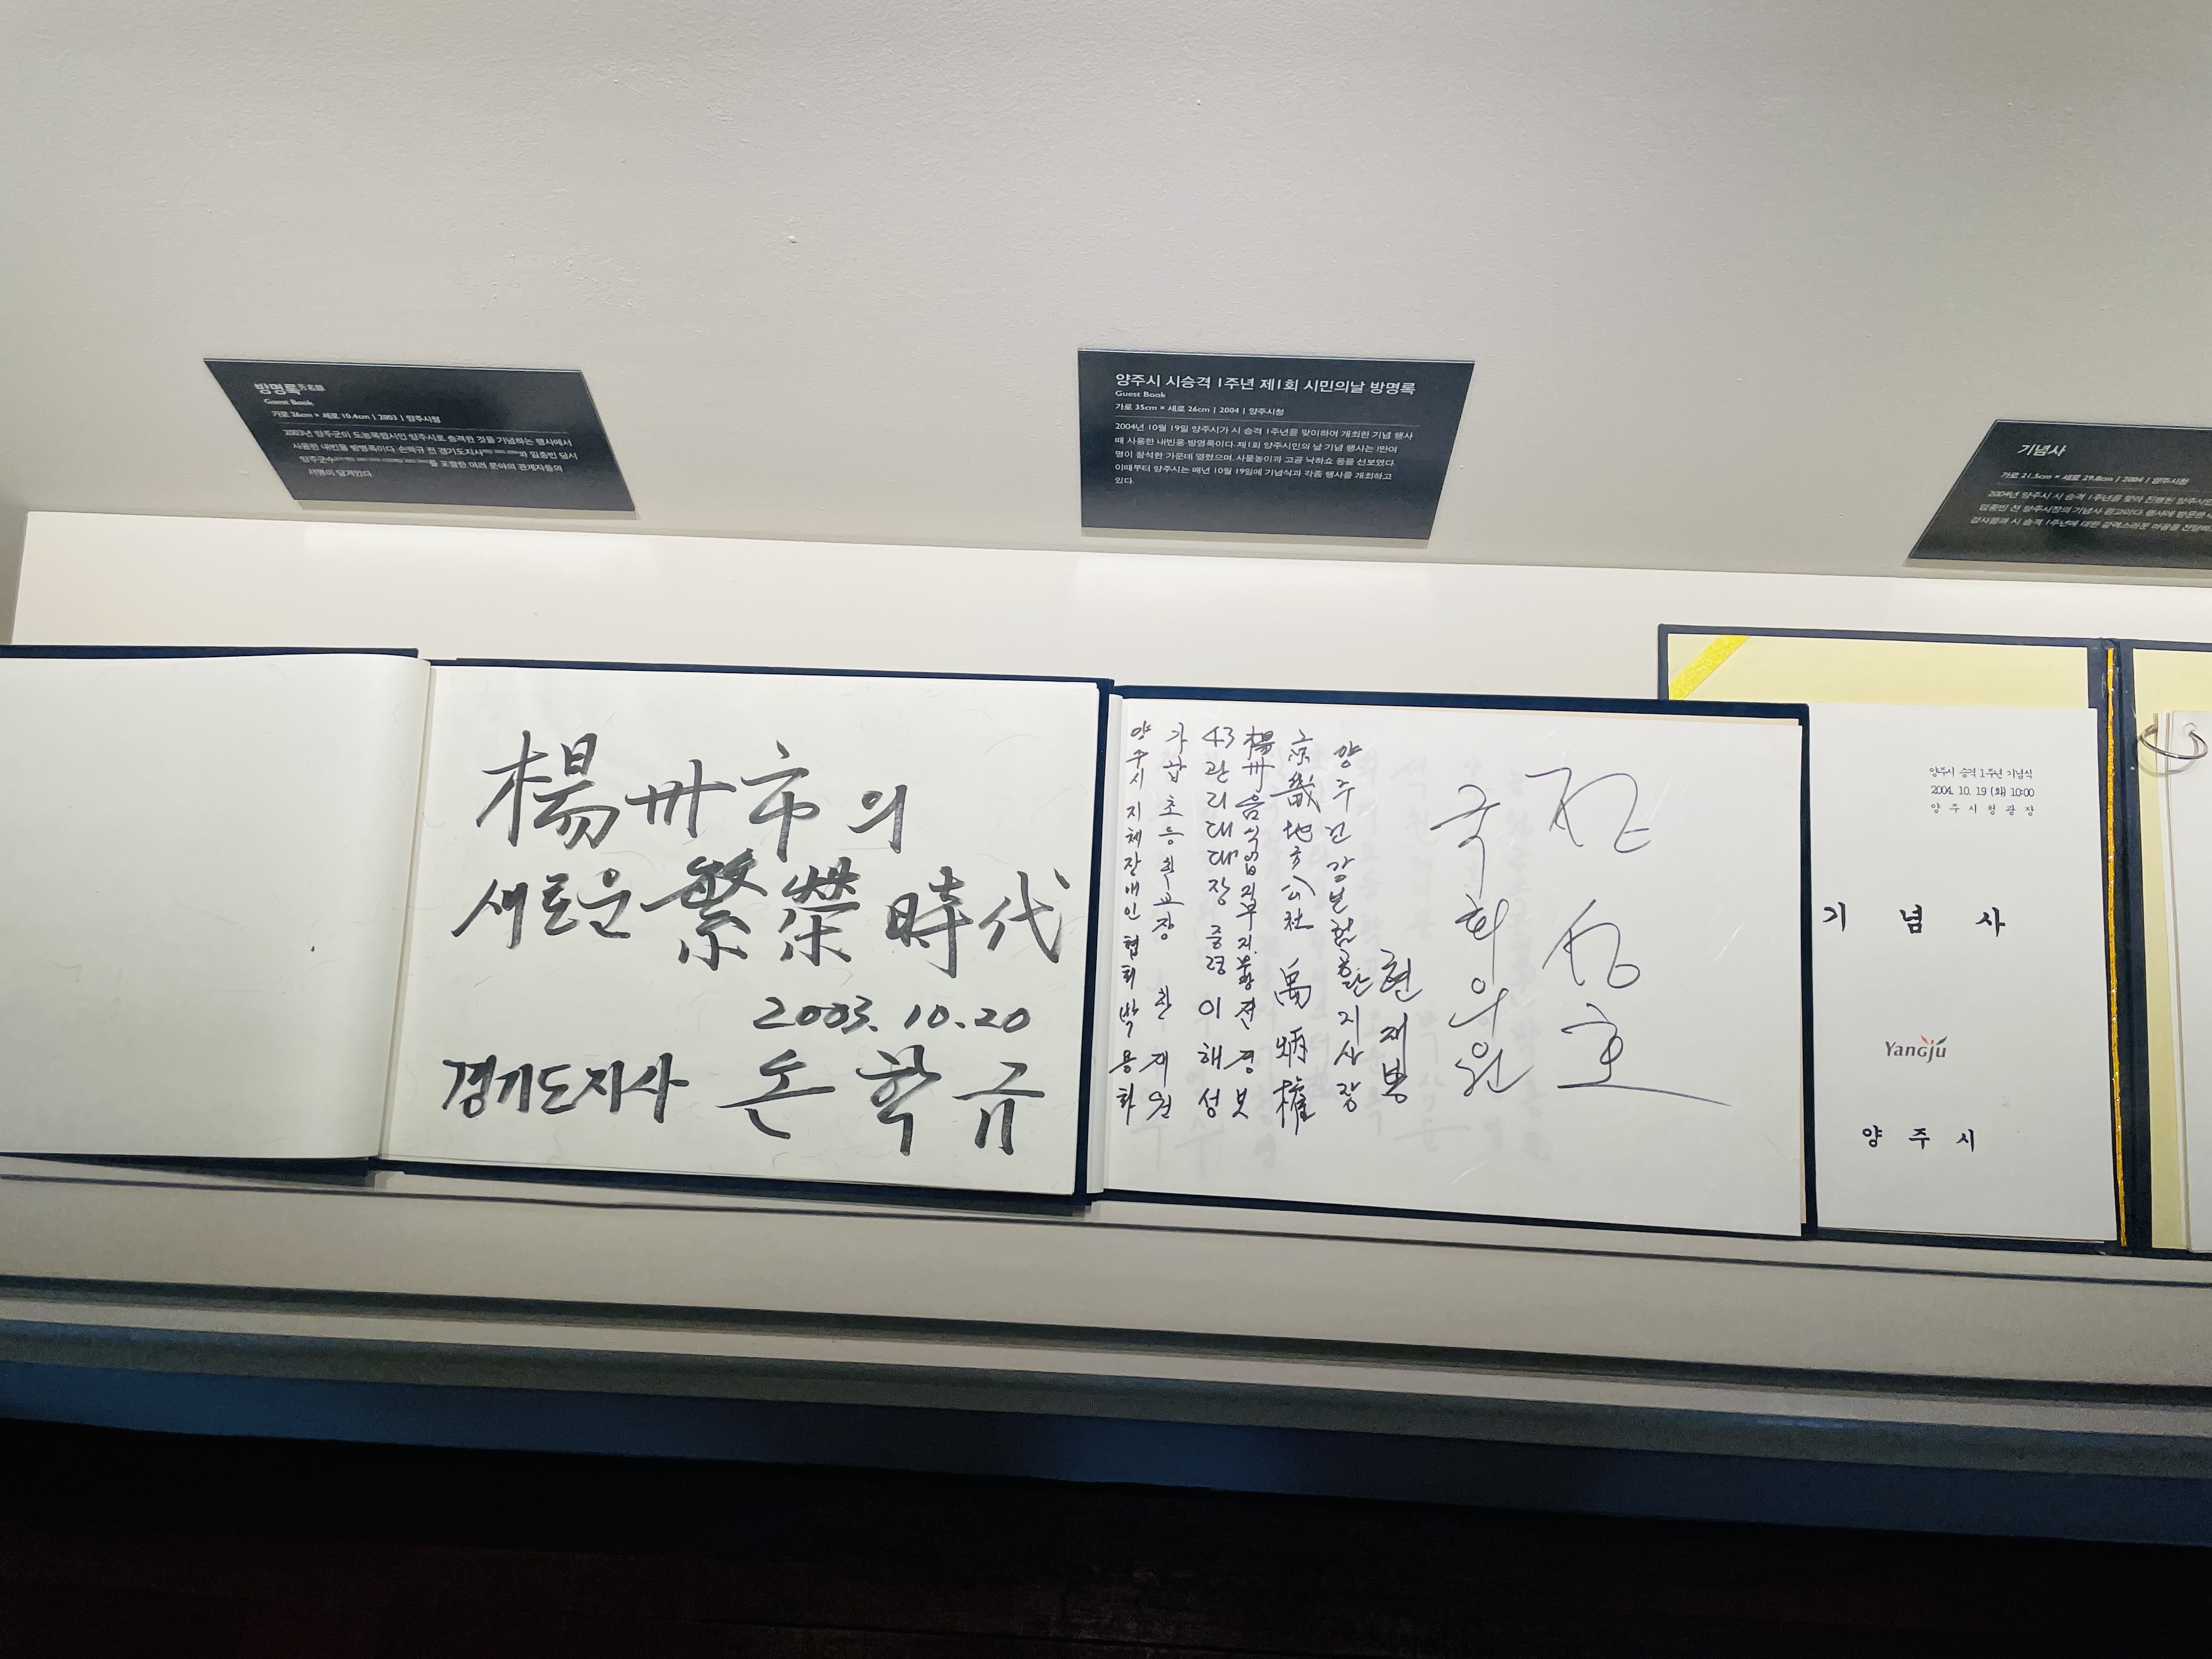 방명록芳名錄
Guest Book
가로 26cm × 세로 10.4cm | 2003 | 양주시청
2003년 양주군이 도농복합시인 양주시로 승격된 것을 기념하는 행사에서
사용한 내빈용 방명록이다. 손학규 전 경기도지사와 임충빈 당시
양주군수를 포함한 여러 분야의 관계자들의
서명이 담겨있다.
양주시 시승격 1주년 제1회 시민의날 방명록
Guest Book
가로 35cm × 세로 26cm | 2004 | 양주시청
2004년 10월 19일 양주시가 시 승격 1주년을 맞이하여 개최한 기념 행사
때 사용한 내빈용 방명록이다. 제1회 양주시민의 날 기념 행사는 1만여
명이 참석한 가운데 열렸으며, 사물놀이과 고공 낙하쇼 등을 선보였다.
이때부터 양주시는 매년 10월 19일에 기념식과 각종 행사를 개최하고
있다.
기념사
가로 21.5cm × 세로 29.8cm | 2004 | 양주시청
2004년 양주시 시 승격 1주년을 맞아 진행된
임충빈 전 양주시장의 기념사 원고이다. 행사에 방문한
감사함과 시 승격 1주년에 대한 감격스러운 마음을
楊州市의
새로운 繁榮時代
2003. 10. 20
경기도지사 손학규
국회의원
양주건강보험공단지사장 현재봉
京畿地方公社 禹炳權
楊州음식업지부지부장 전경보
43관리대대장 중령 이해성
가납초등학교장 한재원
양주시 지체장애인협회 박용화
양주시 승격 1주년 기념식
2004. 10. 19 (화) 10:00
양주시청광장
기념사
Yangju
양주시